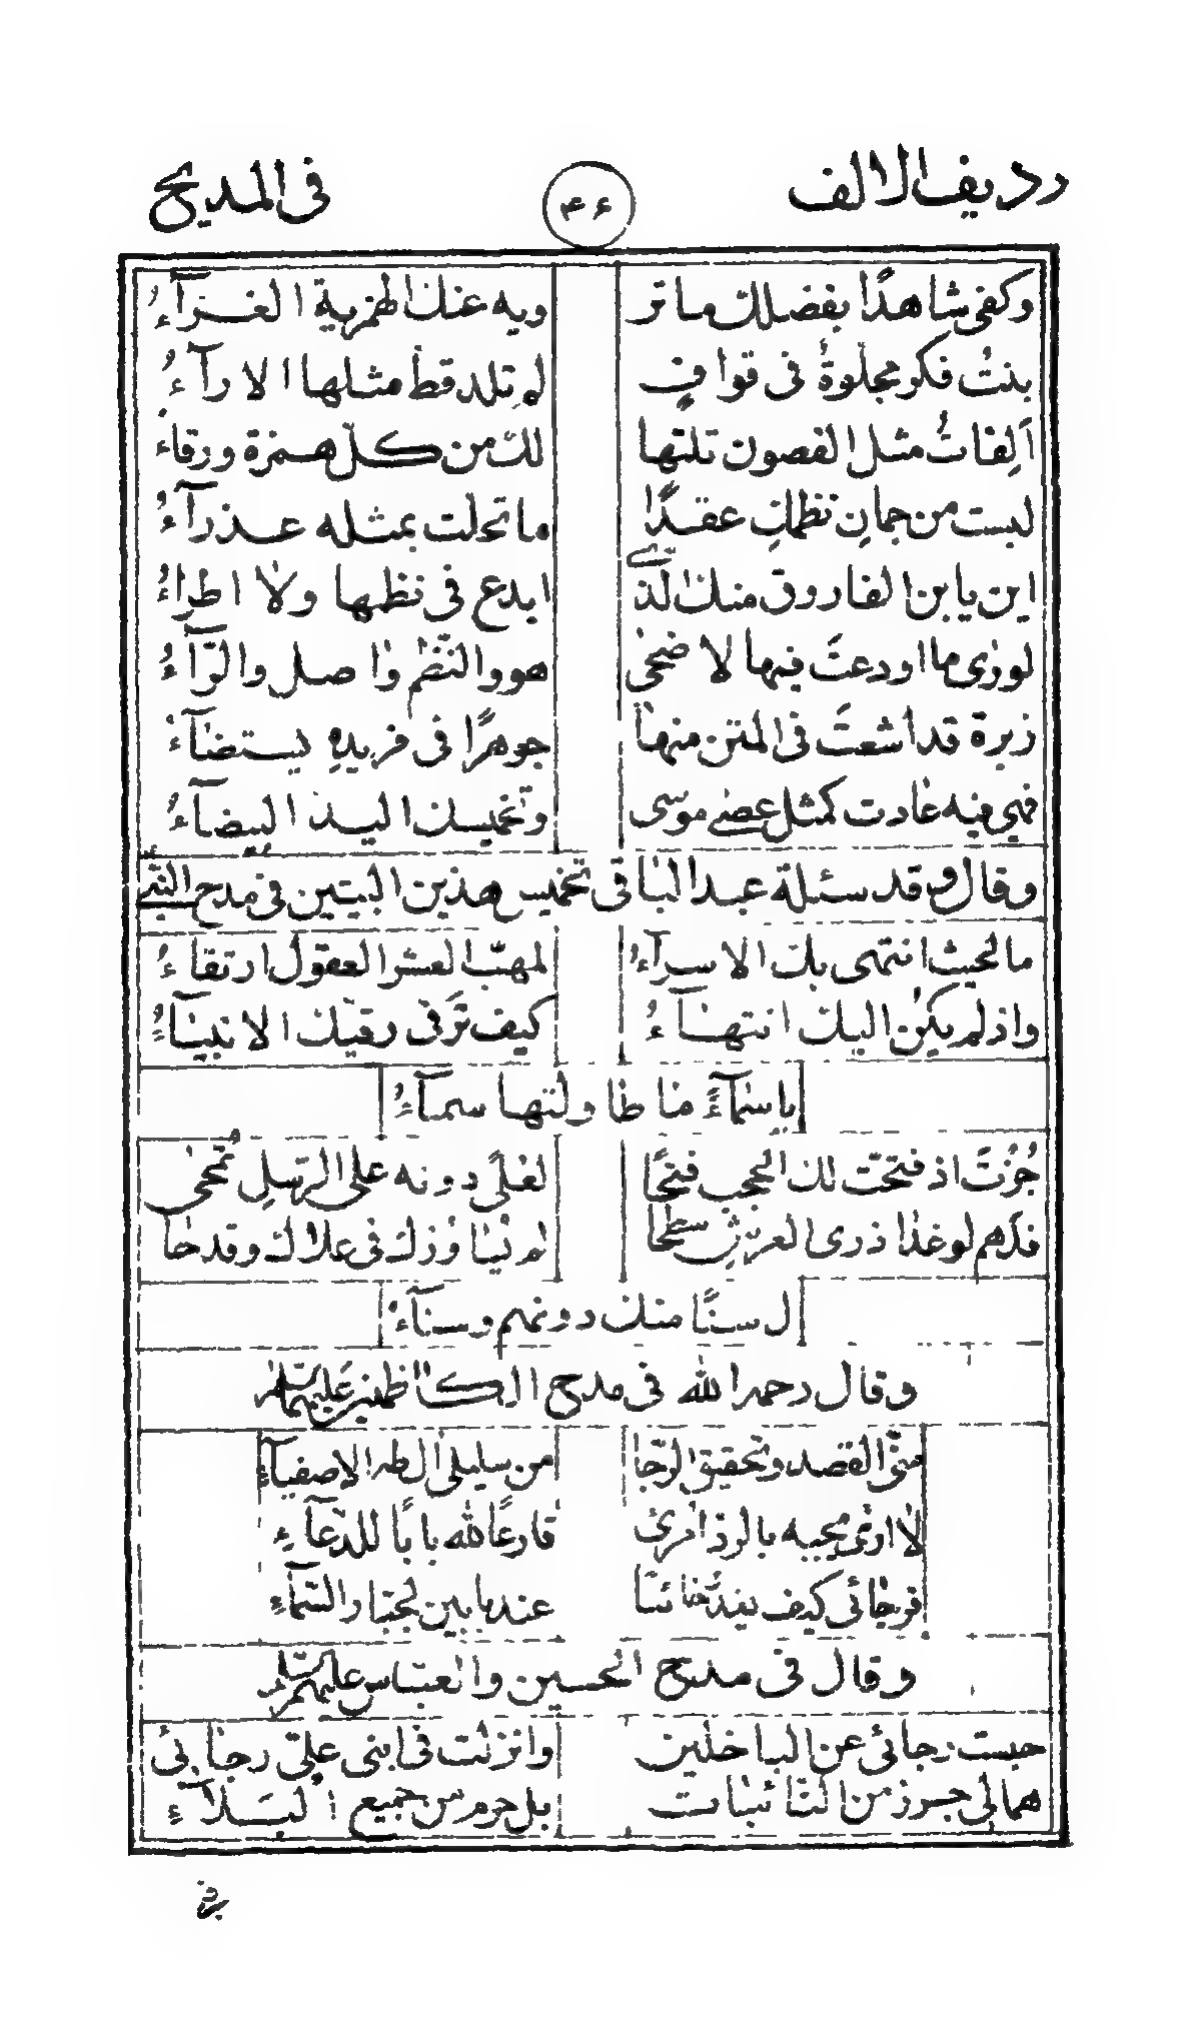 رديف الالف ۴۶ في المديح
وكفى شاهدًا بفضلك ما تر ويه عنك الهمزية الغرّآءُ
بنتُ فكر مجلوةٌ في قوافٍ لم تلد قط مثلها الارآءُ
اَلِفاتٌ مثل الغصون تلتها لك من كل همزة ورقاءُ
لبست من جمانِ نظمك عقدًا ما تحلت بمثله عذرآءُ
اين يابن الفاروق منك الّذي ابدع في نظمها ولا اطراءُ
لورأى ما اودعتَ فيها لاضحى هو والنّظم واصل والرّآءُ
زبرة قد اشعتَ في المتن منها جوهرًا في فريدهِ يستضآءُ
فهي فيه عادت كمثل عصى موسى وتخميسك اليد البيضآءُ
وقال وقد سئله عبد الباقي تخميس هذين البيتين في مدح النّبي
ما لحيث انتهى بك الاسرآءُ لمهبّ العشر العقول ارتقاءُ
واذ لم يكن اليك انتهآءُ كيف ترقى رقيك الانبيآءُ
يا سمآءً ما طاولتها سمآءُ
جُزتَ اذ فتحت لك الحجب فتحًا لعلًى دونه على الرسل تمحى
فدهم لو غدا ذرى العرش سطحا لم ... في علاك وقد حا
ل سنًا منك دونهم وسنآءُ
وقال رحمه الله في مدح الكاظمين عليهما السلام
منّي القصد وتحقيق الرّجا من سليلي ال طه الاصفيآءِ
لا ارى مجيبه بالرد امرئ قارعًا لله بابًا للدّعآءِ
فرجائي كيف يغدو خائبًا عند بابين لجبّار السّمآءِ
وقال في مدح الحسين والعباس عليهم السلام
حبست رجائي عن الباخلين وانزلت في ابني عليّ رجائي
هما لي حرز من النائبات بل حرم من جميع البلآءِ